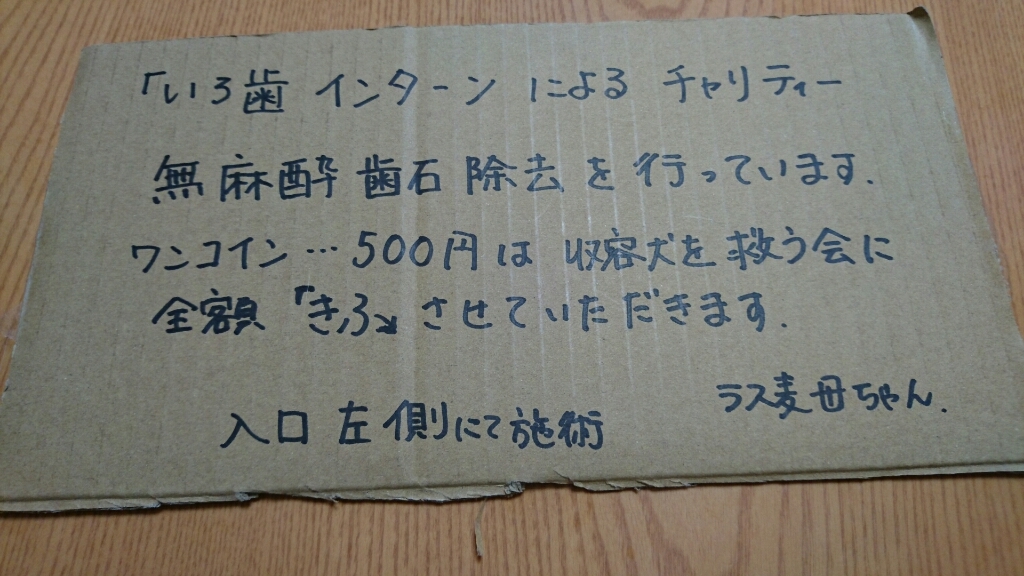 「いろ歯 インターン による チャリティー
無麻酔歯石除去を行っています.
ワンコイン…500円は 収容犬を救う会に
全額『きふ』させていただきます.
ラス麦母ちゃん.
入口 左側にて施術